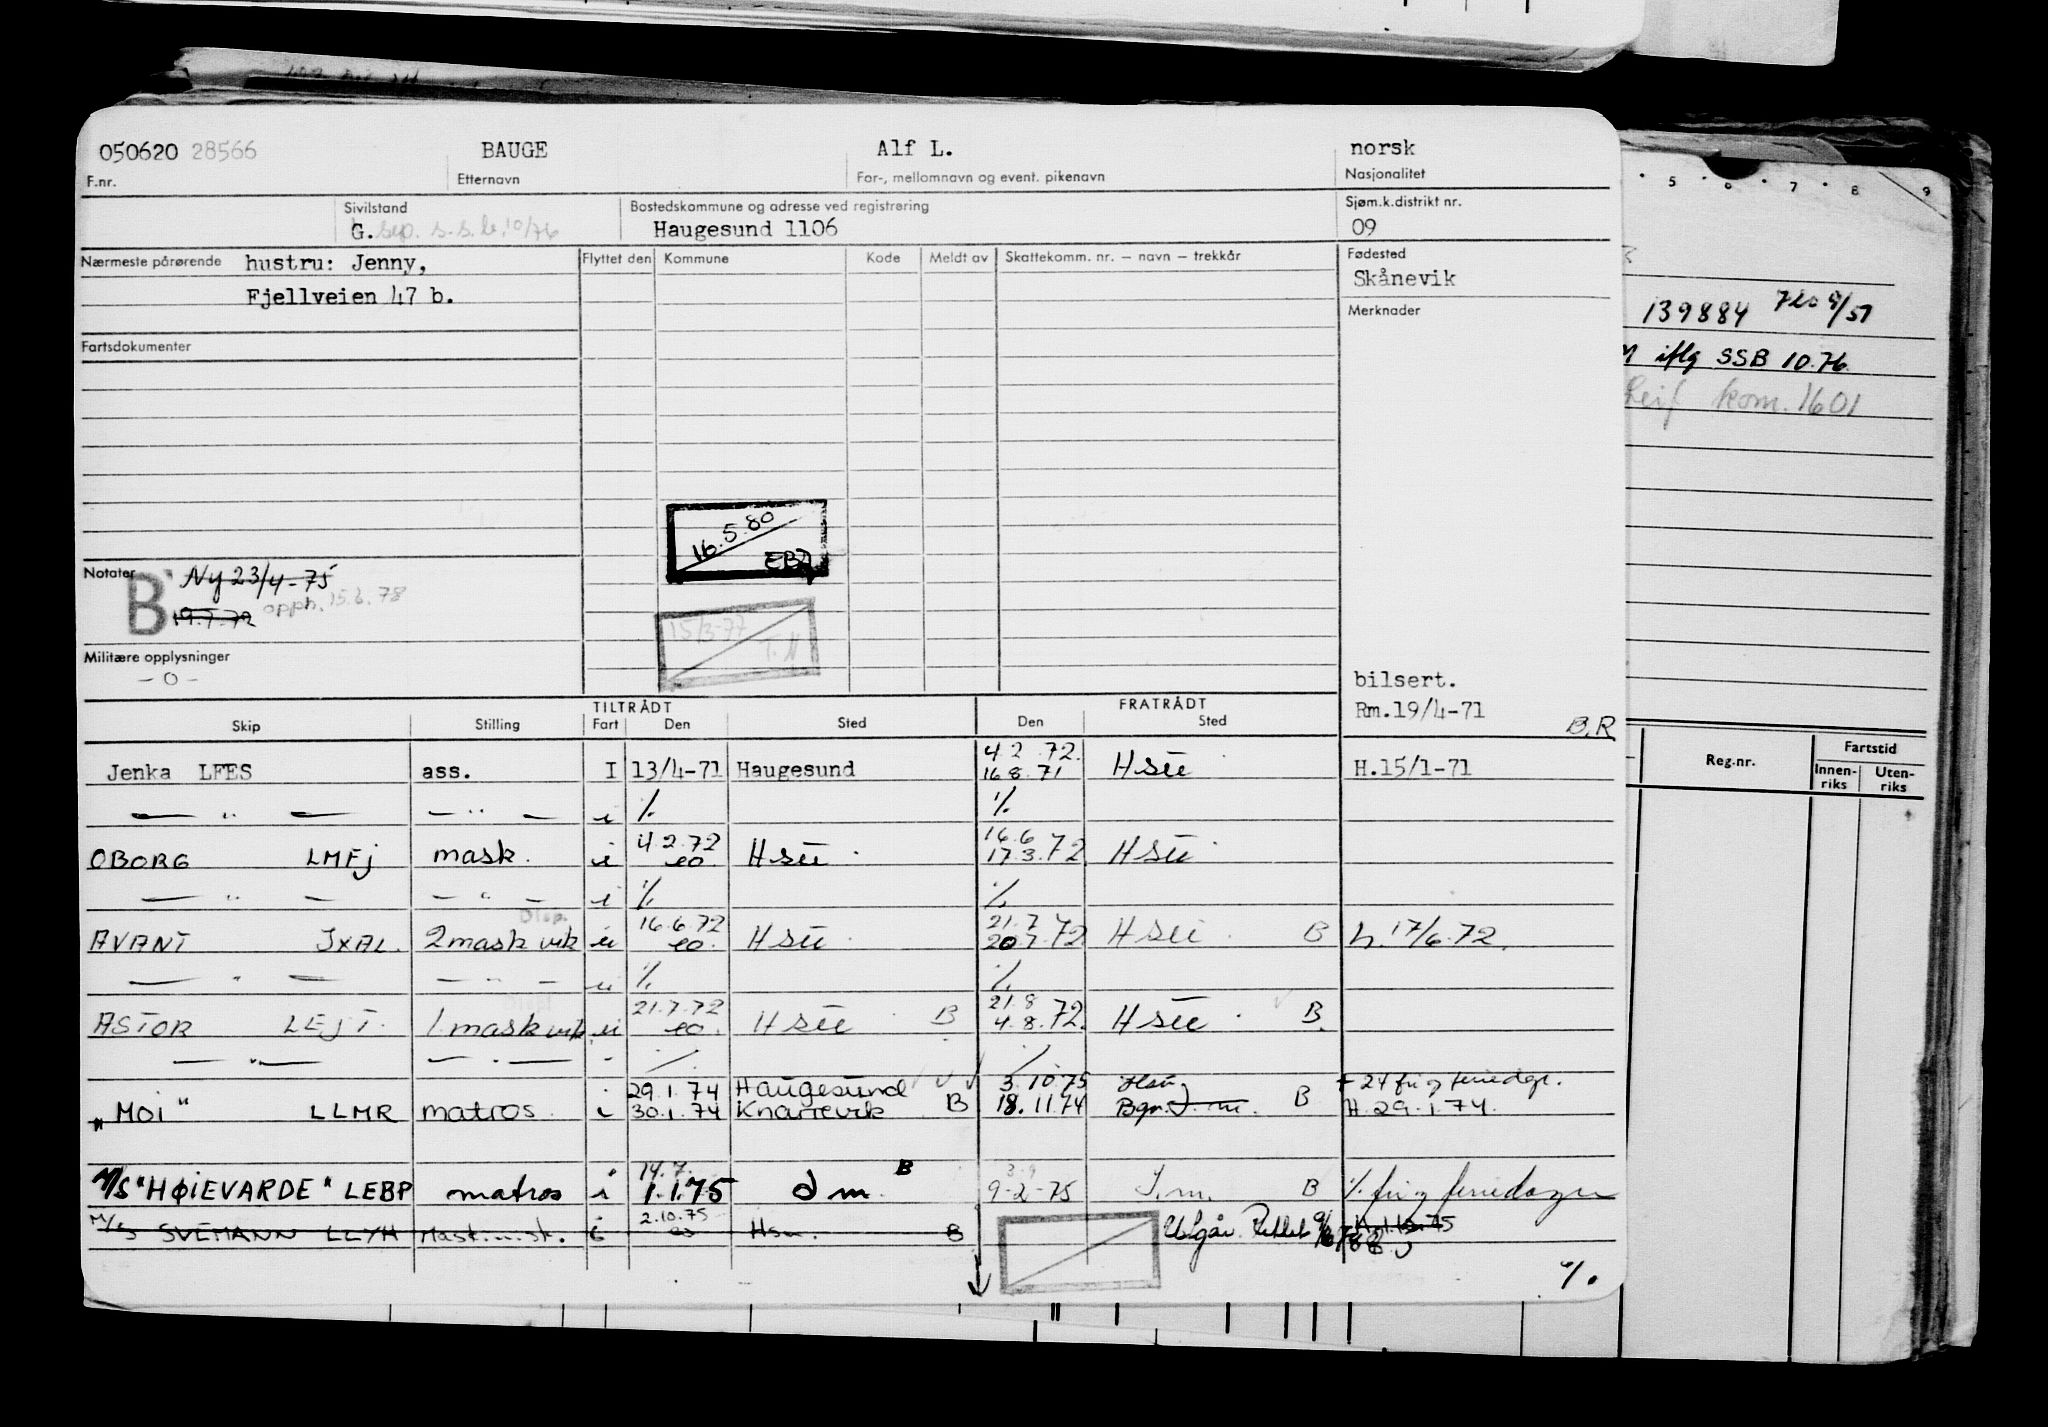 050620 28566 BAUGE Alf L. norsk
F.nr. Etternavn For-, mellomnavn og event. pikenavn Nasjonalitet
Sivilstand Bostedskommune og adresse ved registrering Sjøm.k.distrikt nr.
G. sep. s.s.b. 10/76 Haugesund 1106 09
Nærmeste pårørende hustru: Jenny, Flyttet den Kommune Kode Meldt av Skattekomm. nr. – navn – trekkår Fødested
Skånevik
Fjellveien 47 b.
Merknader
139884 7/51
Fartsdokumenter
iflg SSB 10.76
Leif kom. 1601
16.5.80
EBA
Notater B Ny 23/4-75
19.7.72 opph. 15.6.78
15/3-77
T.N
Militære opplysninger
- O -
bilsert.
Rm.19/4-71
B.R
TILTRÅDT FRATRÅDT
Skip Stilling Fart Den Sted Den Sted
4.2.72.
Jenka LFES ass. I 13/4-71 Haugesund 16.8.71 Hsu H.15/1-71
— " — — " — i % %
4.2.72 16.6
OBORG LMFJ mask. i eo. Hsu 17.3.72 Hsu
— " — — " — i % %
16.6.72 21.7
AVANT JXAL. 2 mask vik u eo. Hsu 20.7.72 Hsu B h. 17/6.72.
— " — — " — u % %
21.7.72 21.8
ASTOR LEJT. 1 mask vik u eo. Hsu B 4.8.72. Hsu B.
— " — — " — - % %
29.1.74 Haugesund 3.10.75 Hsu + 24 fri og feriedgr.
"MOI" LLMR matros i 30.1.74 Knarrevik B 18.11.74 Bgn. J.m. B H.29.1.74.
14.7. B 3.9
M/S "HØIEVARDE" LEBP matros i 1.1.75 J m. 9-2-75 J.m. B % fri og feriedager
2.10.75
M/S SVEMANN LLYH Mask. i eo Hsu. B Utgår.
%
5 6 7 8 9
Reg.nr. Fartstid
Innen-riks Uten-riks